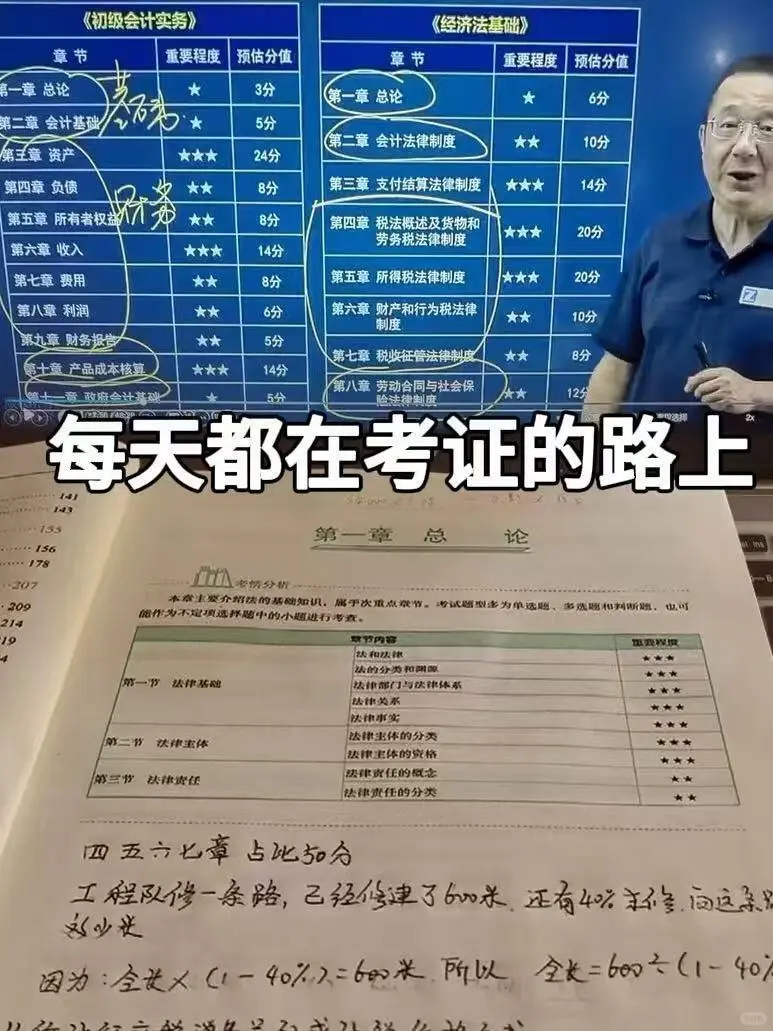 《初级会计实务》
章 节 重要程度 预估分值
第一章 总论 ★ 3分
第二章 会计基础 ★ 5分
基础
第三章 资产 ★★★ 24分
第四章 负债 ★★ 8分
财务
第五章 所有者权益 ★★ 8分
第六章 收入 ★★★ 14分
第七章 费用 ★★ 8分
第八章 利润 ★★ 6分
第九章 财务报告 ★★ 5分
第十章 产品成本核算 ★★★ 14分
第十一章 政府会计基础 ★ 5分
《经济法基础》
章 节 重要程度 预估分值
第一章 总论 ★ 6分
第二章 会计法律制度 ★★ 10分
第三章 支付结算法律制度 ★★★ 14分
第四章 税法概述及货物和
劳务税法律制度 ★★★ 20分
第五章 所得税法律制度 ★★★ 20分
第六章 财产和行为税法律
制度 ★★ 10分
第七章 税收征管法律制度 ★★ 8分
第八章 劳动合同与社会保
险法律制度 ★★ 12分
2x
每天都在考证的路上
141
143
155
156
178
207
209
214
第一章 总 论
考情分析
本章主要介绍法的基础知识，属于次重点章节。考试题型多为单选题、多选题和判断题，也可
能作为不定项选择题中的小题进行考查。
章节内容 重要程度
第一节 法律基础
法和法律 ★★★
法的分类和渊源 ★★★
法律部门与法律体系 ★★★
法律关系 ★★★
法律事实 ★★★
第二节 法律主体
法律主体的分类 ★★★
法律主体的资格 ★★★
第三节 法律责任
法律责任的概念 ★★
法律责任的分类 ★★
四五六七章 占比50分
工程队修一条路，已经修建了600米，还有40%未修，问这条
多少米
因为：全长×(1-40%)=600米，所以 全长=600÷(1-40%